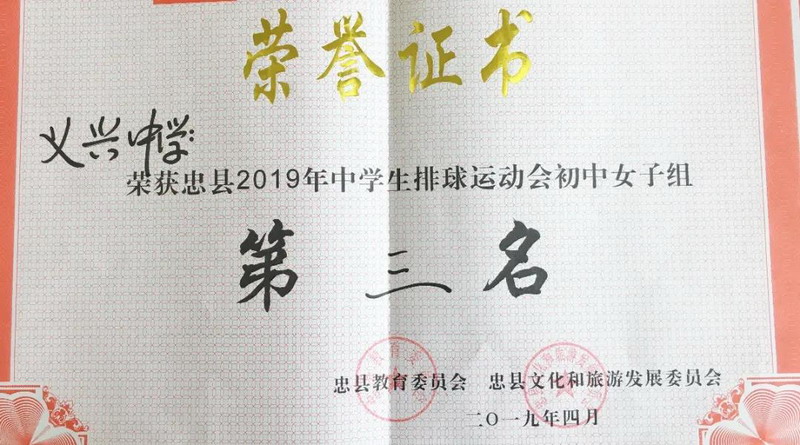 荣誉证书
义兴中学:
荣获忠县2019年中学生排球运动会初中女子组
第三名
忠县教育委员会 忠县文化和旅游发展委员会
二〇一九年四月